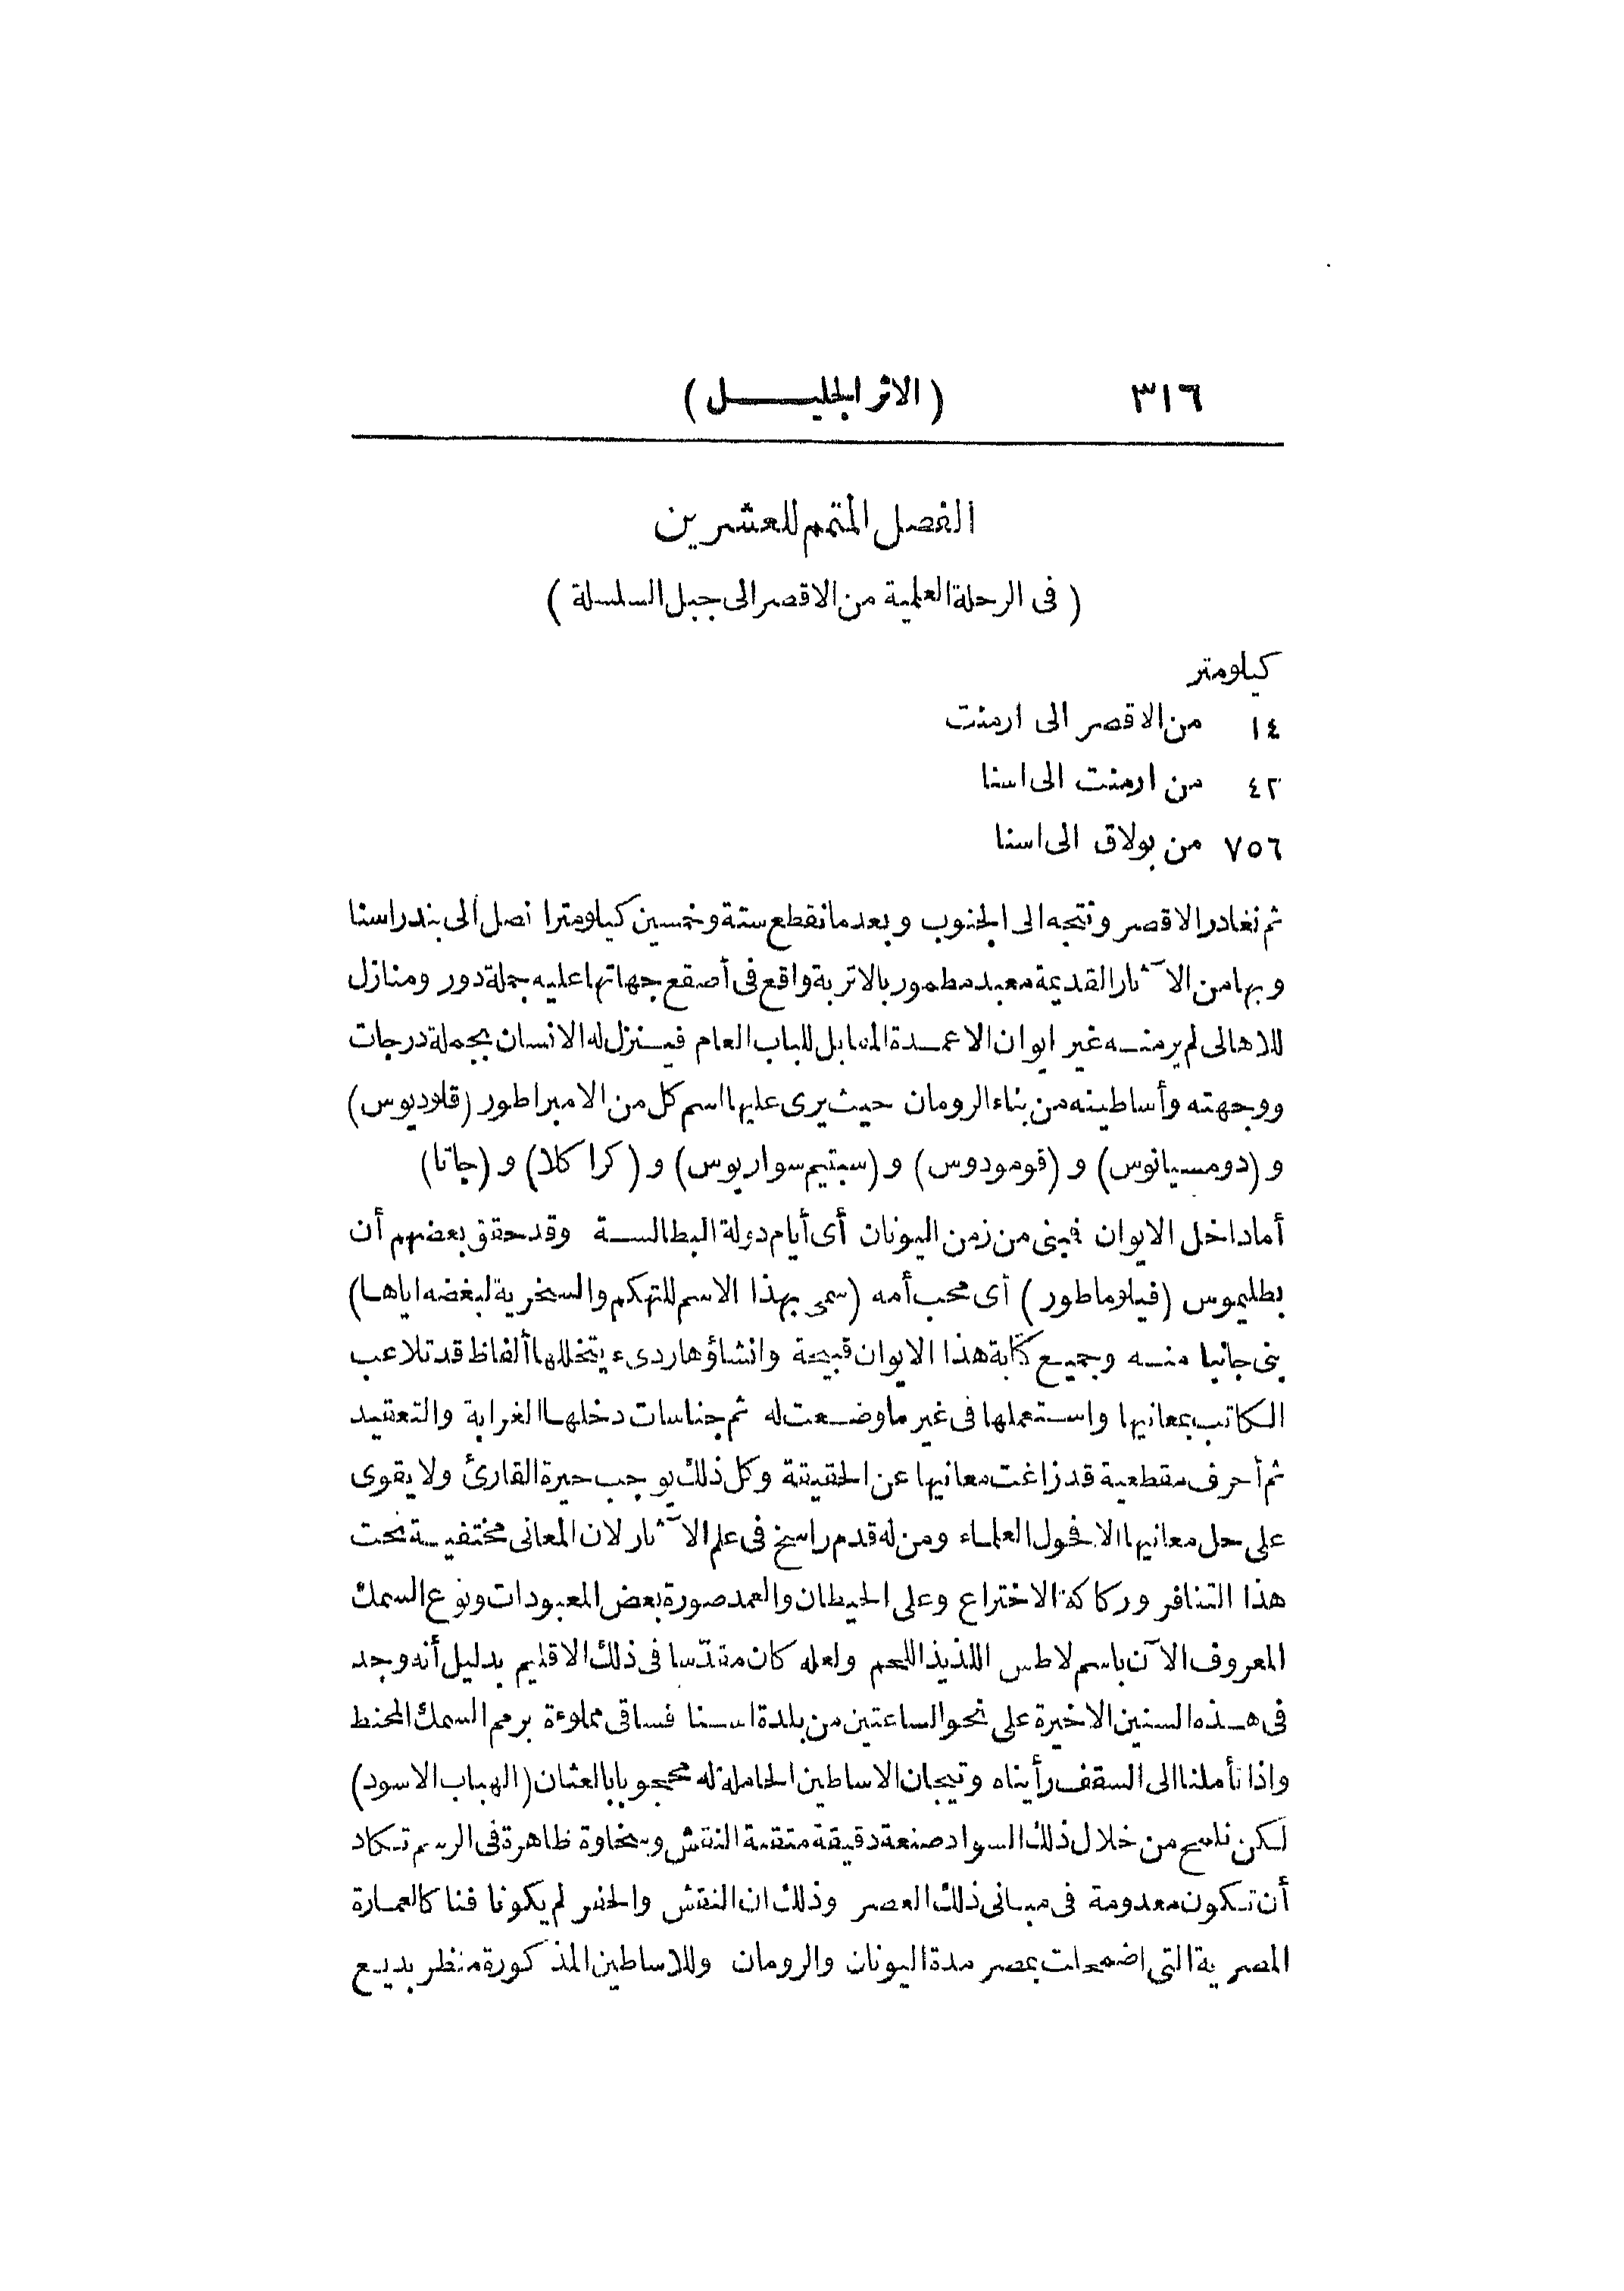 ٣١٦ (الاثر الجليل)
الفصل المتمم للعشرين
(فى الرحلة العلمية من الاقصر الى جبل السلسلة)
كيلومتر
١٤ من الاقصر الى ارمنت
٤٢ من ارمنت الى اسنا
٧٥٦ من بولاق الى اسنا
ثم نغادر الاقصر ونتجه الى الجنوب وبعد ما نقطع ستة وخمسين كيلومترا نصل الى بندر اسنا
وبها من الآثار القديمة معبد مطمور بالاتربة واقع فى أصقع جهاتها عليه جملة دور ومنازل
للاهالى لم ير منه غير ايوان الاعمدة المقابل للباب العام فينزل له الانسان بجملة درجات
ووجهته وأساطينه من بناء الرومان حيث يرى عليها اسم كل من الامبراطور (قلوديوس)
و (دومسيانوس) و (قومودوس) و (سبتيم سواريوس) و (كراكلا) و (جاتا)
أما داخل الايوان فبنى من زمن اليونان أى أيام دولة البطالسة وقد حقق بعضهم أن
بطليموس (فيلوماطور) أى محب أمه (سمى بهذا الاسم للتهكم والسخرية لبغضه اياها)
بنى جانبا منه وجميع كتابة هذا الايوان قبيحة وانشاؤها ردىء يتخللها ألفاظ قد تلاعب
الكاتب بمعانيها واستعملها فى غير ما وضعت له ثم جناسات دخلها الغرابة والتعقيد
ثم أحرف مقطعية قد زاغت معانيها عن الحقيقة وكل ذلك يوجب حيرة القارئ ولا يقوى
على حل معانيها الا فحول العلماء ومن له قدم راسخ فى علم الآثار لان المعانى مختفية تحت
هذا التنافر وركاكة الاختراع وعلى الحيطان والعمد صورة بعض المعبودات ونوع السمك
المعروف الآن باسم لاطس اللذيذ اللحم ولعله كان مقدّسا فى ذلك الاقليم بدليل أنه وجد
فى هذه السنين الاخيرة على نحو الساعتين من بلدة اسنا فساقى مملوءة برمم السمك المحنط
واذا تأملنا الى السقف رأيناه وتيجان الاساطين الحاملة له محجوبا بالعثان (الهباب الاسود)
لكن نلمح من خلال ذلك السواد صنعة دقيقة متقنة النقش وسخاوة ظاهرة فى الرسم تكاد
أن تكون معدومة فى مبانى ذلك العصر وذلك ان النقش والحفر لم يكونا فنا كالعمارة
المصرية التى اضمحلت بمصر مدة اليونان والرومان وللاساطين المذكورة منظر بديع